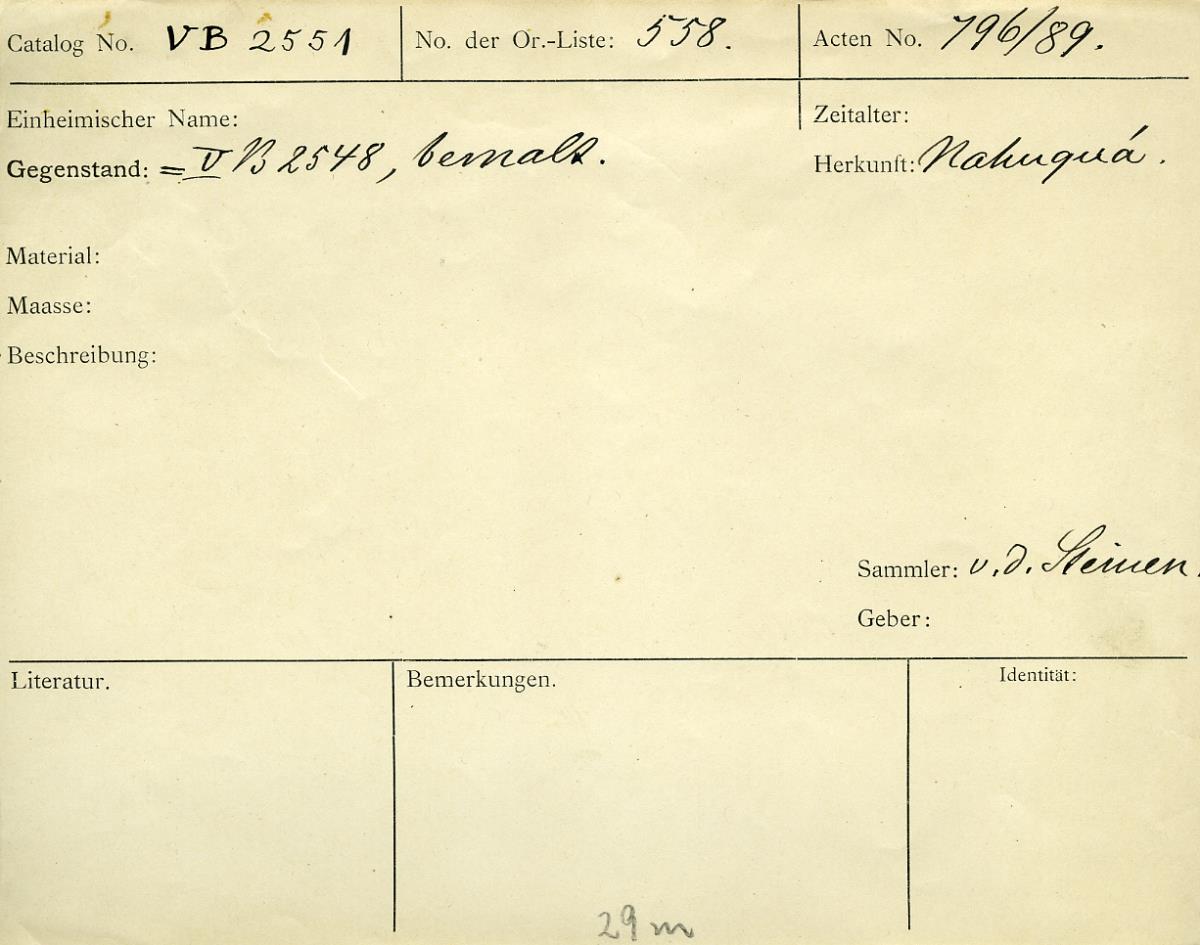 Catalog No. VB 2551 No. der Or.-Liste: 558. Acten No. 796/89.
Einheimischer Name: Zeitalter:
Gegenstand: = V B 2548, bemalt. Herkunft: Nahuquá.
Material:
Maasse:
Beschreibung:
Sammler: v. d. Steinen.
Geber:
Literatur. Bemerkungen. Identität:
29 m